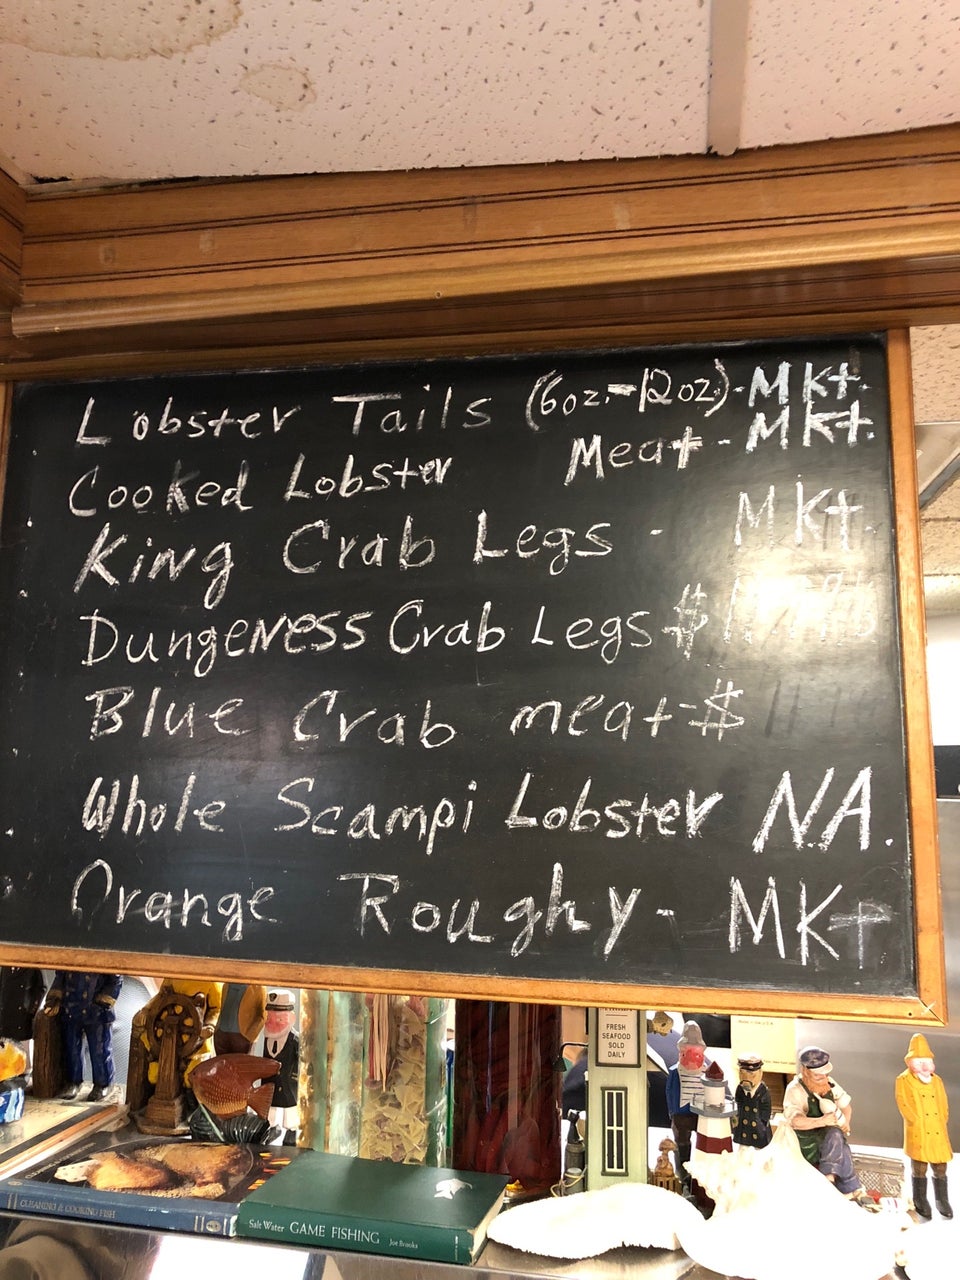 Lobster Tails (6oz.-12oz)-MKt.
Cooked Lobster Meat-MKt.
King Crab Legs - MKt.
Dungeness Crab Legs $
Blue Crab meat-$
Whole Scampi Lobster NA.
Orange Roughy- MKt
FRESH
SEAFOOD
SOLD
DAILY
CLEANING & COOKING FISH
Salt Water GAME FISHING Joe Brooks